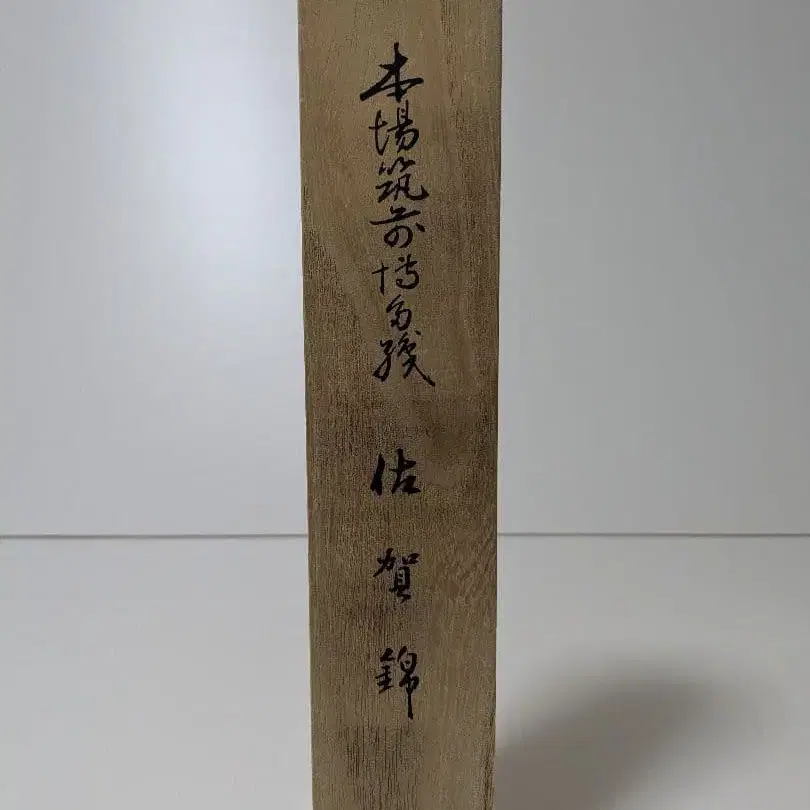 本場筑前博多織 佐賀錦